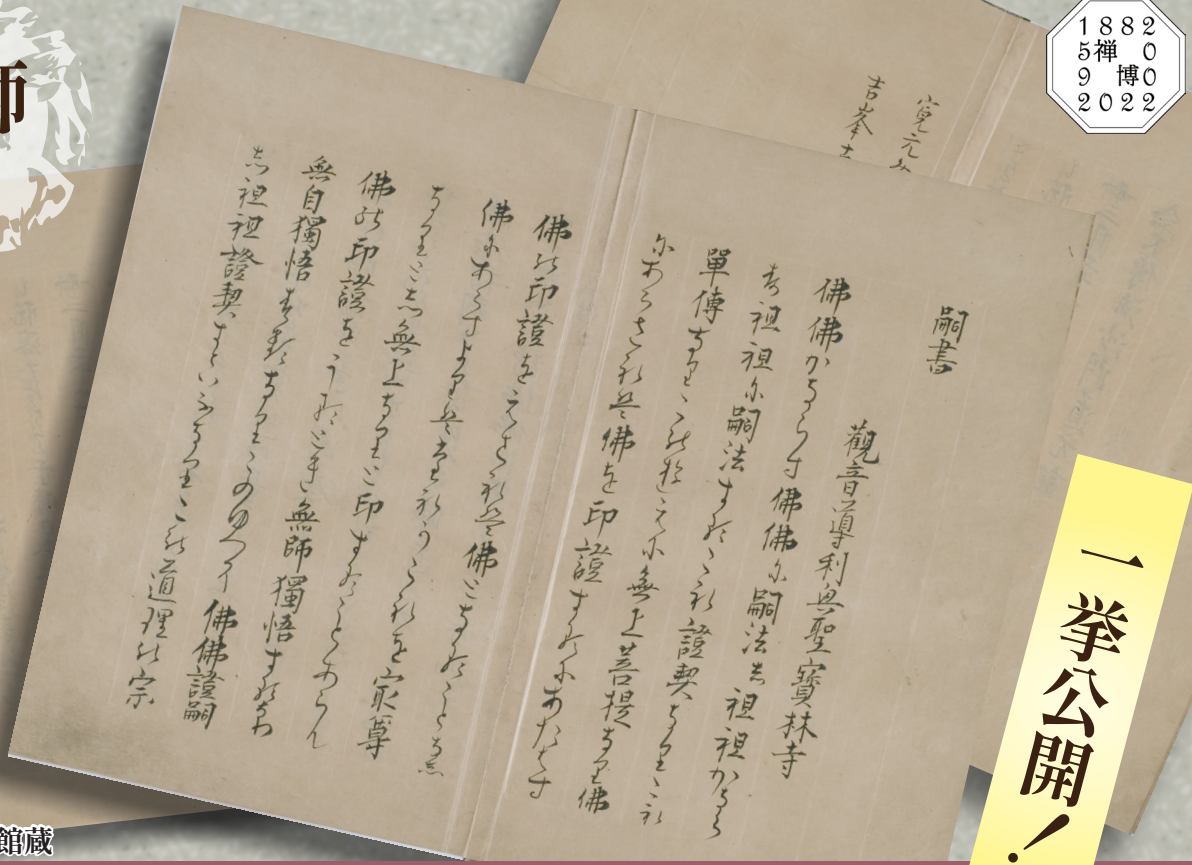 師
1882
5禅 0
9 博0
2022
寛元
吉峯
嗣書
觀音導利興聖寶林寺
佛佛かならす佛佛に嗣法し祖祖かなら
す祖祖に嗣法するこれ證契なりこれ
單傳なりこのゆへに無上菩提なり佛
にあらされは佛を印證するにあたはす
佛の印證をえされは佛となることなし
佛にあらすよりはたれかこれを最尊
なりとし無上なりと印することあらん
佛の印證をうるとき無師獨悟するなり
無自獨悟するなりこのゆへに佛佛證嗣
し祖祖證契すといふなりこの道理の宗
一挙公開!
館蔵